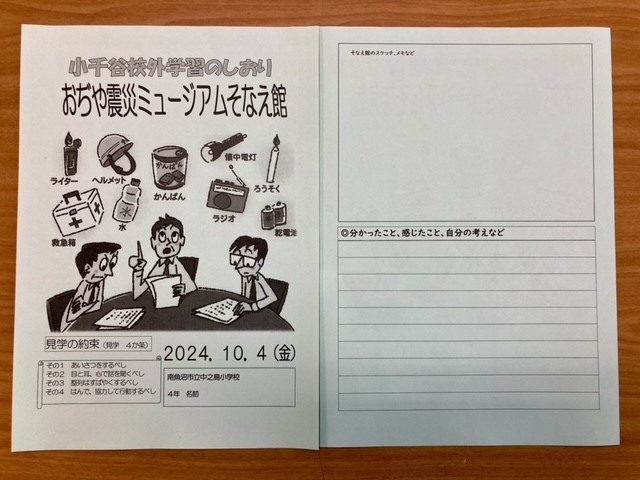 小千谷校外学習のしおり
おぢや震災ミュージアムそなえ館
ライター
ヘルメット
かんぱん
かんぱん
懐中電灯
ろうそく
救急箱
水
水
ラジオ
乾電池
見学の約束（見学　4か条）
その1　あいさつをするべし
その2　目と耳、心で話を聞くべし
その3　整列はすばやくするべし
その4　はんで、協力して行動するべし
2024.10.4(金)
南魚沼市立中之島小学校
4年　名前
そなえ館のスケッチ、メモなど
◎分かったこと、感じたこと、自分の考えなど